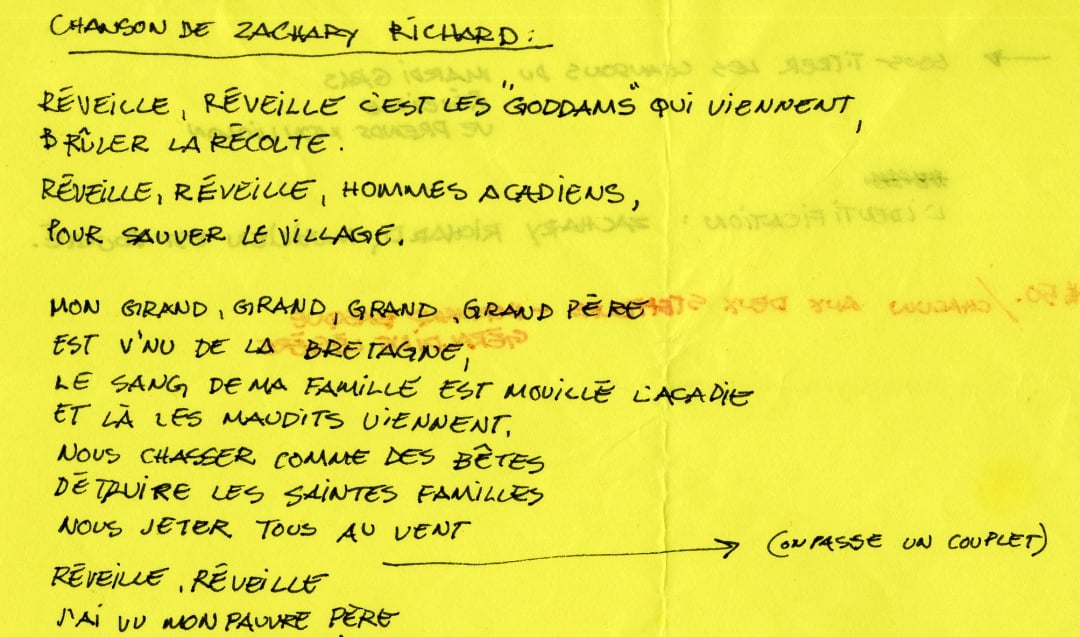 CHANSON DE ZACHARY RICHARD :
RÉVEILLE, RÉVEILLE C'EST LES "GODDAMS" QUI VIENNENT,
BRÛLER LA RÉCOLTE.
RÉVEILLE, RÉVEILLE, HOMMES ACADIENS,
POUR SAUVER LE VILLAGE.
MON GRAND, GRAND, GRAND, GRAND PÈRE
EST V'NU DE LA BRETAGNE,
LE SANG DE MA FAMILLE EST MOUILLÉ L'ACADIE
ET LÀ LES MAUDITS VIENNENT,
NOUS CHASSER COMME DES BÊTES
DÉTRUIRE LES SAINTES FAMILLES
NOUS JETER TOUS AU VENT
(ON PASSE UN COUPLET)
RÉVEILLE, RÉVEILLE
J'AI VU MON PAUVRE PÈRE